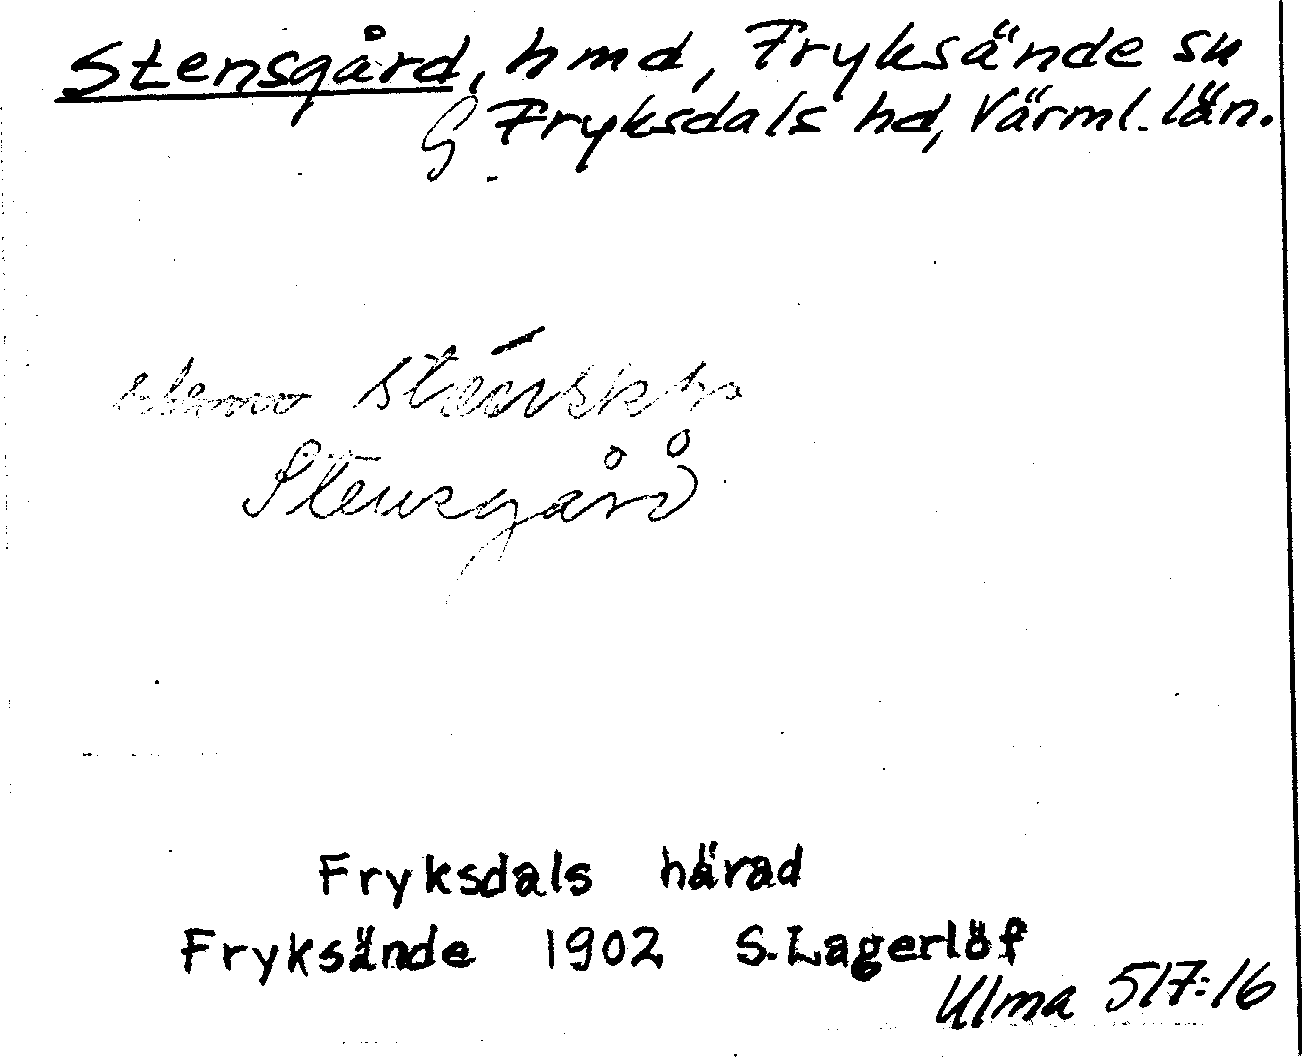 Stensgård, hmd, Fryksände sn
G Fryksdals hd, Värml. län.
Stensgård
Fryksdals härad
Fryksände 1902 S. Lagerlöf
Ulma 517:16